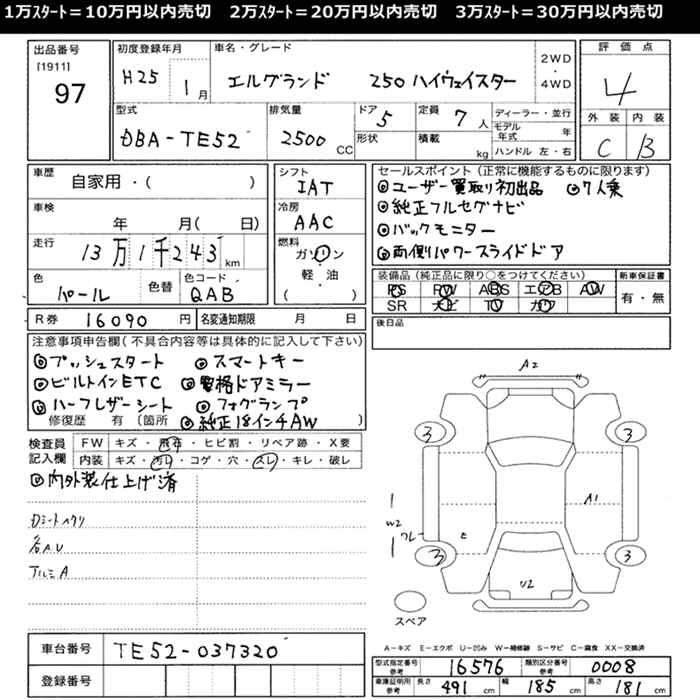 1万スタート＝10万円以内売切　2万スタート＝20万円以内売切　3万スタート＝30万円以内売切
出品番号
[1911]
97
初度登録年月
H25 1月
車名・グレード
エルグランド 250 ハイウェイスター
2WD・4WD
評価点
4
外装 内装
C B
型式
DBA-TE52
排気量
2500 CC
ドア 5
形状
定員 7人
積載 kg
ディーラー・並行
モデル年式 年
ハンドル 左・右
車歴
自家用・( )
車検
年 月( 日)
走行
13万1千243km
色
パール
色替
色コード
QAB
シフト
IAT
冷房
AAC
燃料
ガソリン
軽・油
( )
R券 16090円
名変通知期限 月 日
セールスポイント（正常に機能するものに限ります）
◎ユーザー買取り初出品 ◎7人乗
◎純正フルセグナビ
◎バックモニター
◎両側パワースライドドア
装備品（純正品に限り○をつけてください）
PS PW ABS エアB AW
SR ナビ TV カワ
新車保証書
有・無
後日品
注意事項申告欄(不具合内容等は具体的に記入して下さい)
◎プッシュスタート ◎スマートキー
◎ビルトインETC ◎電格ドアミラー
◎ハーフレザーシート ◎フォグランプ
修復歴 有 〔箇所 ◎純正18インチAW )
検査員記入欄
FW キズ・飛石・ヒビ割・リペア跡・X要
内装 キズ・汚れ・コゲ・穴・スレ・キレ・破レ
◎内外装仕上げ済
各A.U
アルミA
A2
3
3
A1
W2
ワレ
3
3
U2
スペア
A－キズ E－エクボ U－凹み W－補修跡 S－サビ C－腐食 XX－交換済
車台番号 TE52-037320
登録番号
型式指定番号 参考 16576
類別区分番号 参考 0008
車庫証明用 参考 長さ 491cm 幅 185cm 高さ 181cm